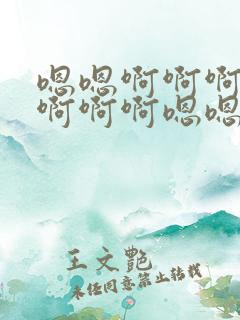 嗯嗯啊啊啊
啊啊啊嗯嗯
王文艷
未任同意禁止转载